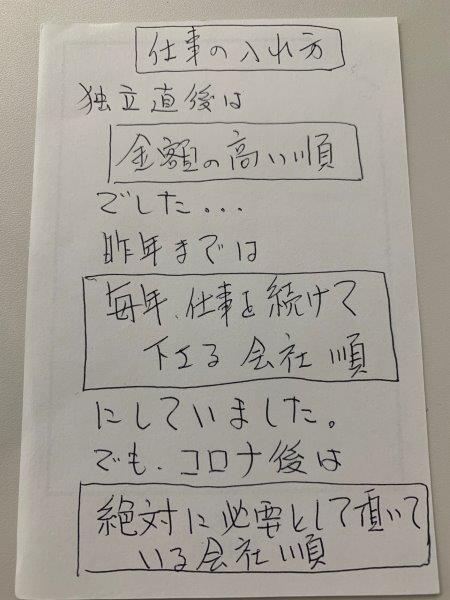 仕事の入れ方
独立直後は
金額の高い順
でした...
昨年までは
毎年、仕事を続けて
下さる会社順
にしていました。
でも、コロナ後は
絶対に必要として頂いて
いる会社順